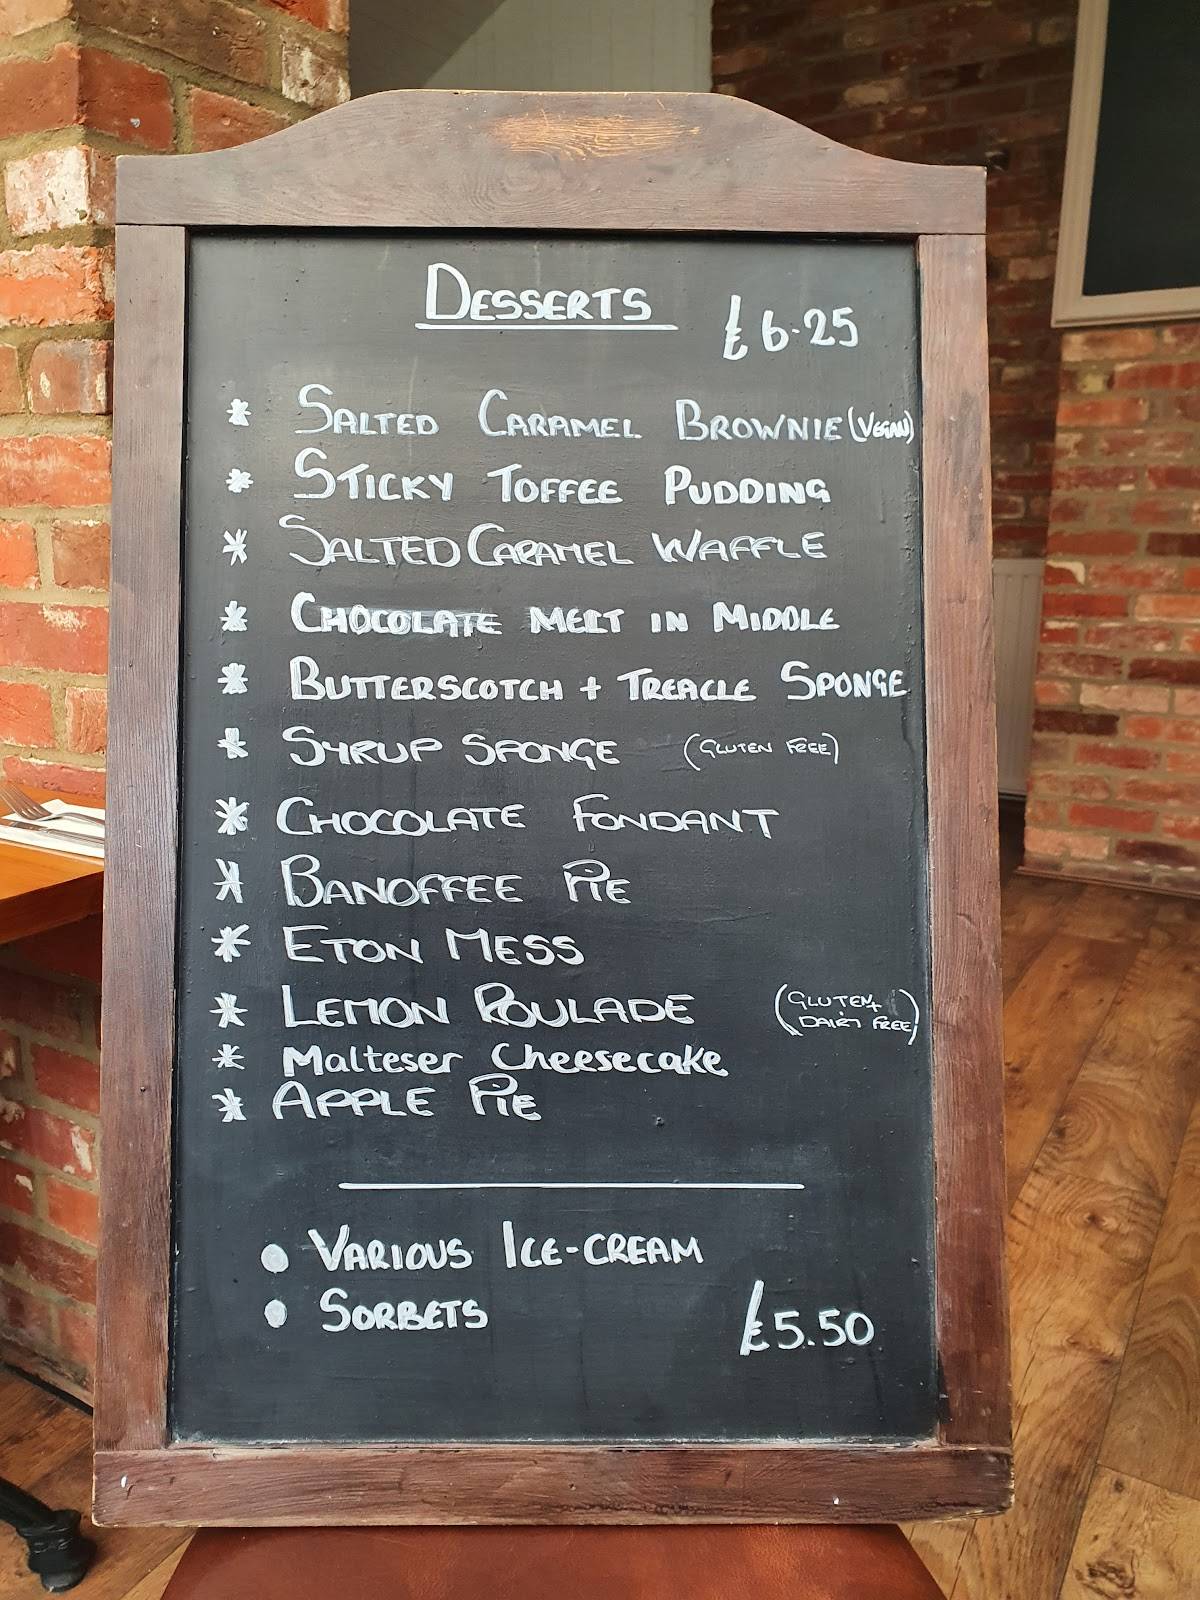 DESSERTS
£6.25
* SALTED CARAMEL BROWNIE (VEGAN)
* STICKY TOFFEE PUDDING
* SALTED CARAMEL WAFFLE
* CHOCOLATE MELT IN MIDDLE
* BUTTERSCOTCH + TREACLE SPONGE
* SYRUP SPONGE (GLUTEN FREE)
* CHOCOLATE FONDANT
* BANOFFEE PIE
* ETON MESS
* LEMON ROULADE (GLUTEN + DAIRY FREE)
* Malteser Cheesecake
* APPLE PIE
• VARIOUS ICE-CREAM
• SORBETS
£5.50